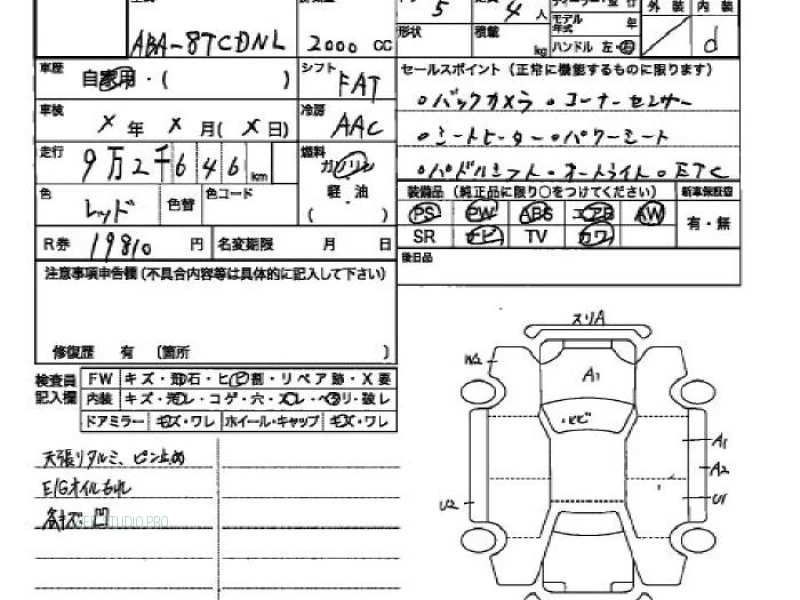 5 4 人
モデル年式 年
外装 内装
ABA-8TCDNL 2000 CC 形状 積載 kg ハンドル 左・右 d
車歴 自家用・( ) シフト FAT セールスポイント (正常に機能するものに限ります)
車検 X 年 X 月( X 日) 冷房 AAC
・バックカメラ ・コーナーセンサー
・シートヒーター ・パワーシート
走行 9万2千646 km 燃料 ガソリン 軽・油 ( )
・パドルシフト ・オートライト ・ETC
装備品 (純正品に限り○をつけてください) 新車保証書
色 レッド 色替 色コード
PS PW ABS エアB AW 有・無
R券 19810 円 名変期限 月 日
SR ナビ TV カワ
注意事項申告欄(不具合内容等は具体的に記入して下さい)
後日品
修復歴 有 (箇所 )
検査員記入欄 FW キズ・飛石・ヒビ割・リペア跡・X要
内装 キズ・汚レ・コゲ・穴・スレ・ヘタリ・破レ
ドアミラー キズ・ワレ ホイール・キャップ キズ・ワレ
天張りタルミ、ピン止め
E/Gオイルもれ
各キズ凹
スリA
W2
A1
・ヒビ
A1
A2
U2
U1
STUDIO.PRO